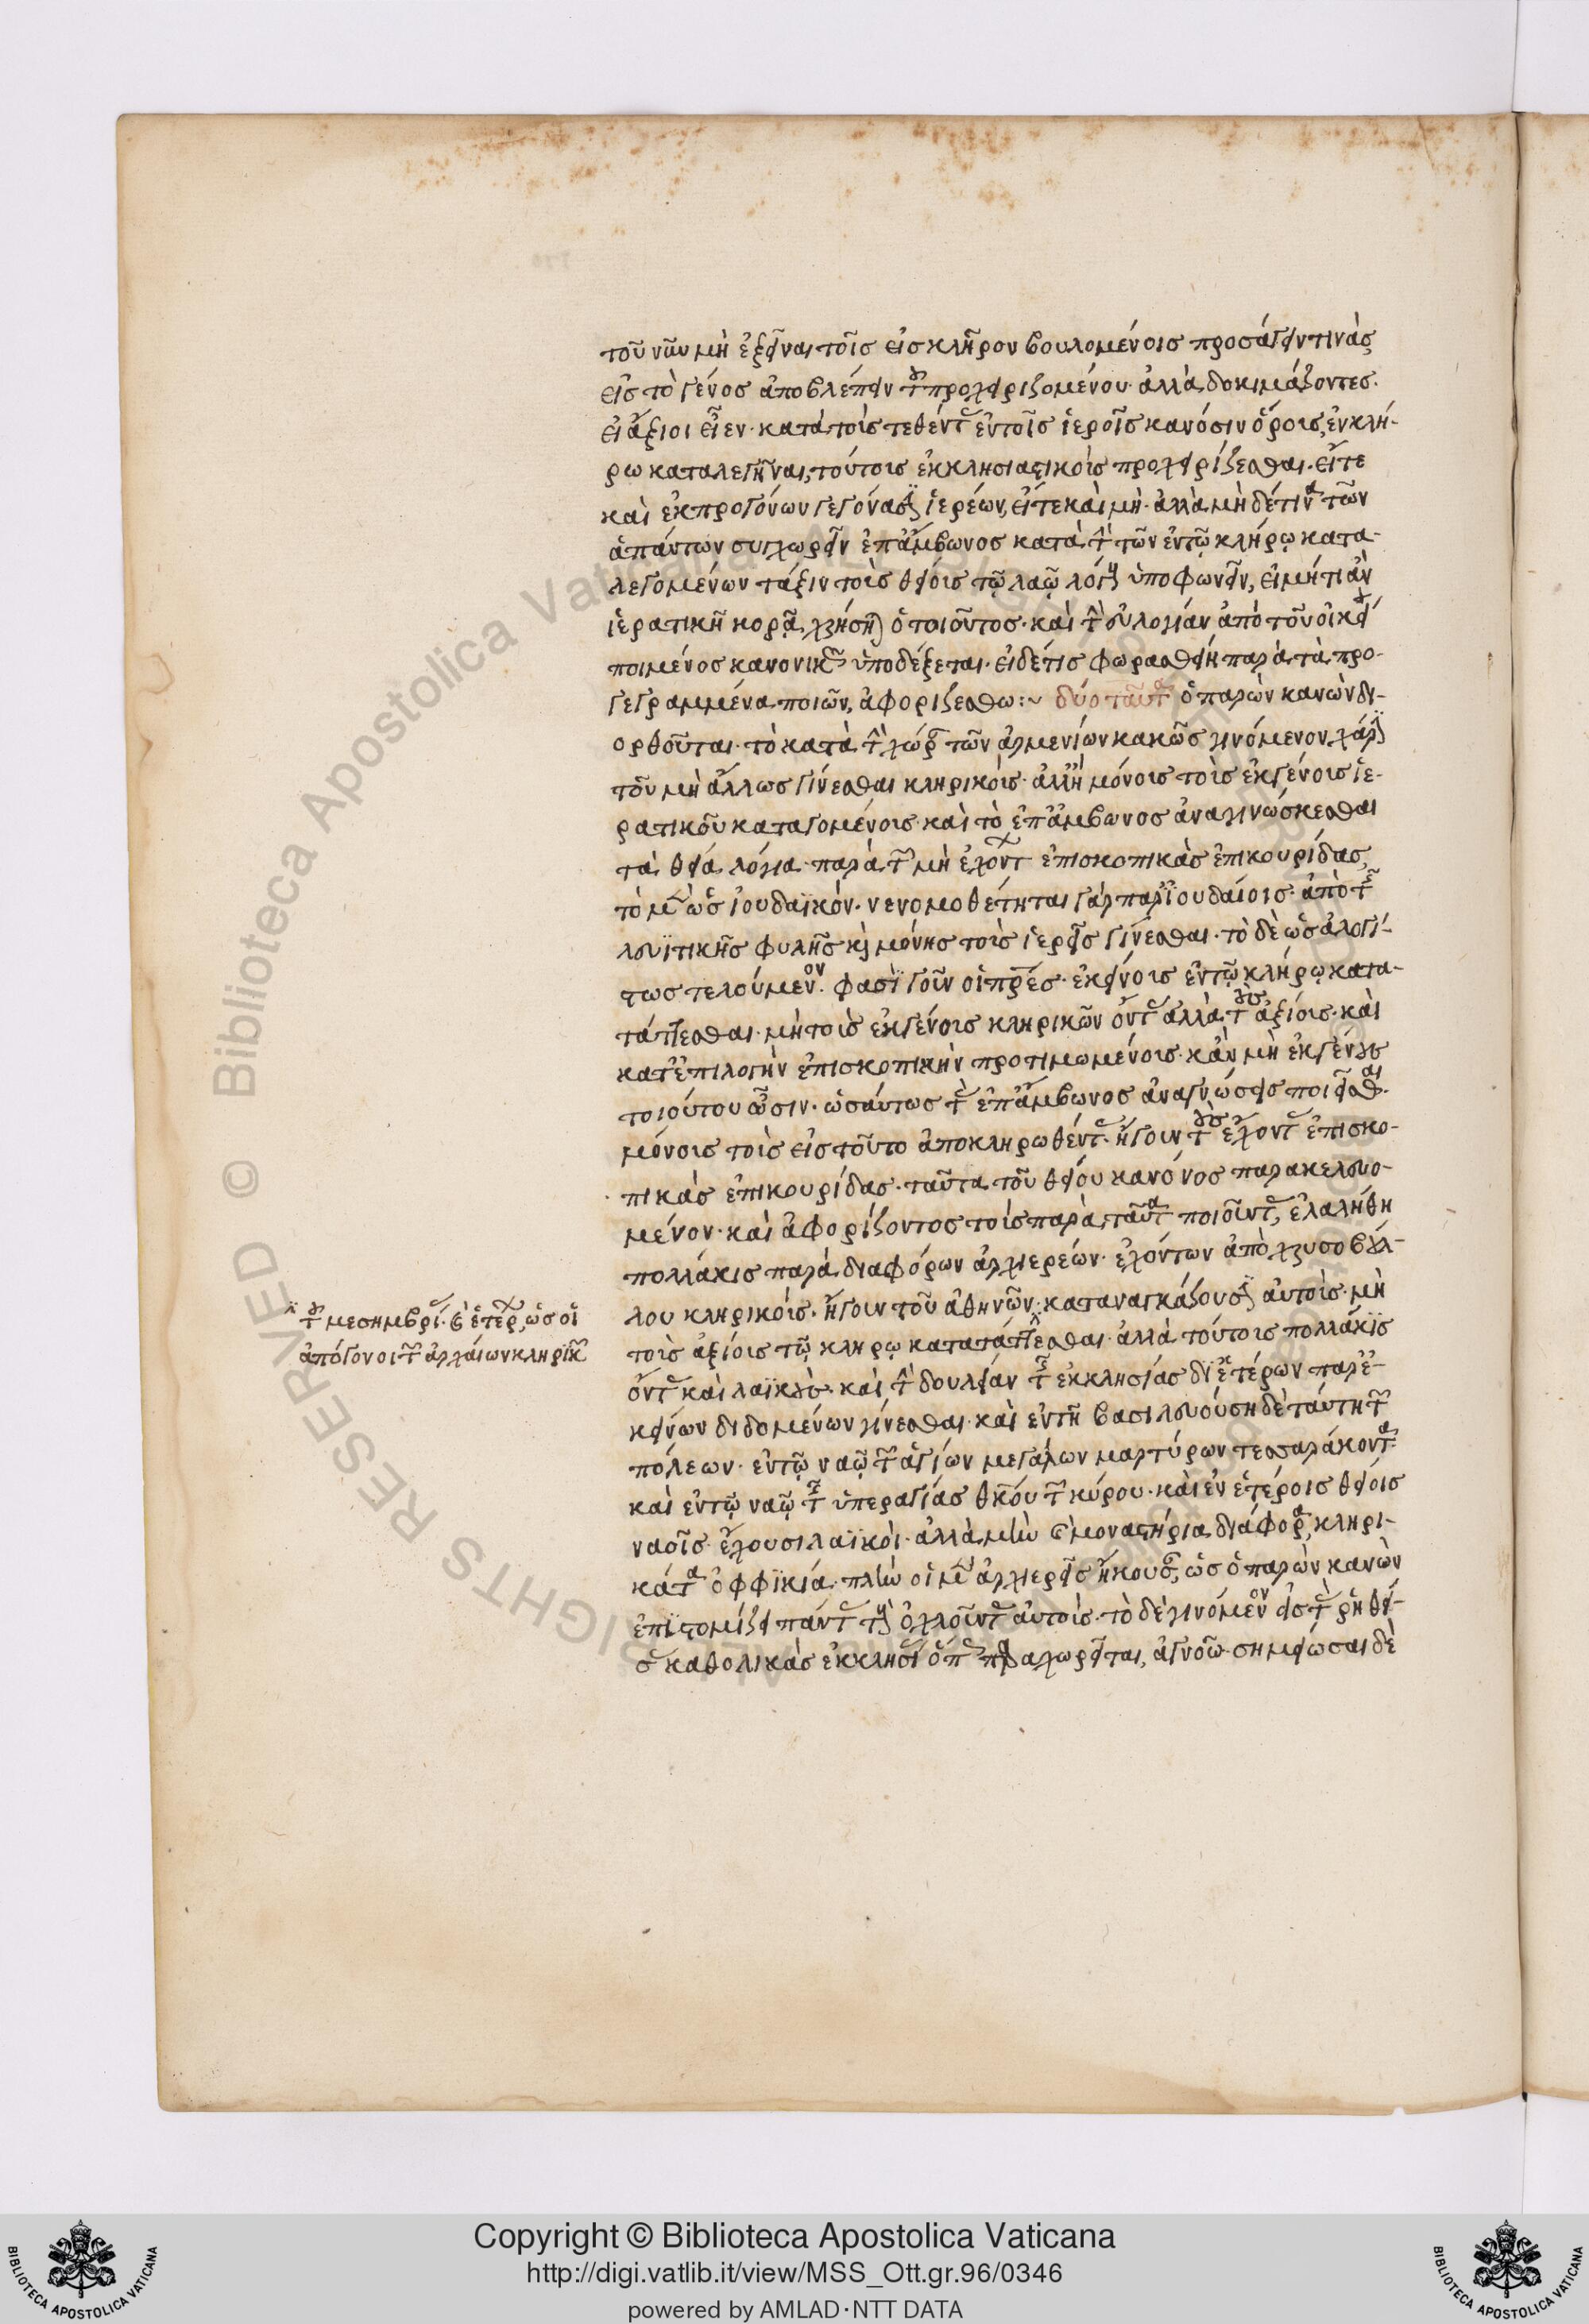 τοῦ νῦν μὴ ἐξεῖναι τοῖς εἰς κλῆρον βουλομένοις προσάγειν τινὰς
εἰς τὸ γένος ἀποβλέπειν τοῦ προχειριζομένου· ἀλλὰ δοκιμάζοντες.
εἰ ἄξιοι εἶεν· κατὰ τοὺς τεθέντας ἐν τοῖς ἱεροῖς κανόσιν ὅρους, ἐν κλή-
ρω καταλεγῆναι, τούτους ἐκκλησιαστικοὺς προχειρίζεσθαι· εἴτε
καὶ ἐκ προγόνων γεγόνασιν ἱερέων, εἴτε καὶ μή· ἀλλὰ μὴ δέ τινα τῶν
ἁπάντων συγχωρεῖν ἐπ' ἄμβωνος κατὰ τὴν τῶν ἐν τῷ κλήρῳ κατα-
λεγομένων τάξιν τοὺς θείους τῷ λαῷ λόγους ὑποφωνεῖν, εἰ μήτι ἂν
ἱερατικῇ κουρᾷ χρήσηται ὁ τοιοῦτος· καὶ τὴν εὐλογίαν ἀπὸ τοῦ οἰκείου
ποιμένος κανονικῶς ὑποδέξεται· εἰ δέ τις φωραθείη παρὰ τὰ προ-
γεγραμμένα ποιῶν, ἀφοριζέσθω :~ δύο ταῦτα ὁ παρὼν κανὼν δι-
ορθοῦται· τὸ κατὰ τὴν χώραν τῶν ἀρμενίων κακῶς γινόμενον χάριν
τοῦ μὴ ἄλλως γίνεσθαι κληρικοὺς· ἀλλ' ἢ μόνους τοὺς ἐκ γένους ἱε-
ρατικοῦ καταγομένους· καὶ τὸ ἐπ' ἄμβωνος ἀναγινώσκεσθαι
τὰ θεῖα λόγια παρὰ τῶν μὴ ἐχόντων ἐπισκοπικὰς ἐπικουρίδας,
τὸ μὲν ὡς ἰουδαϊκόν· νενομοθέτηται γὰρ παρ' ἰουδαίοις· ἀπὸ τῆς
λευϊτικῆς φυλῆς καὶ μόνης τοὺς ἱερεῖς γίνεσθαι· τὸ δὲ ὡς ἀλογί-
στως τελούμενον. φασὶ γοῦν οἱ πατέρες· ἐκείνους ἐν τῷ κλήρῳ κατα-
τάττεσθαι· μὴ τοὺς ἐκ γένους κληρικῶν ὄντας ἀλλὰ τοὺς ἀξίους· καὶ
κατ' ἐπιλογὴν ἐπισκοπικὴν προτιμωμένους· κἂν μὴ ἐκ γένους
τοιούτου ὦσιν· ὡσαύτως τὰς ἐπ' ἄμβωνος ἀναγνώσεις ποιεῖσθαι.
μόνους τοὺς εἰς τοῦτο ἀποκληρωθέντας· ἤγουν τοὺς ἔχοντας ἐπισκο-
πικὰς ἐπικουρίδας· ταῦτα τοῦ θείου κανόνος παρακελευο-
μένου· καὶ ἀφορίζοντος τοὺς παρὰ ταῦτα ποιοῦντας, ἐλαλήθη
πολλάκις παρὰ διαφόρων ἀρχιερέων· ἐχόντων ἀπὸ χρυσοβούλ-
λου κληρικοὺς· ἤγουν τοῦ ἀθηνῶν· καταναγκάζουσιν αὐτοὺς· μὴ
τοὺς ἀξίους τῷ κλήρῳ κατατάττεσθαι· ἀλλὰ τούτους πολλάκις
ὄντας καὶ λαϊκοὺς· καὶ τὴν δουλείαν τῆς ἐκκλησίας δι' ἑτέρων παρ' ἐ-
κείνων διδομένων γίνεσθαι· καὶ ἐν τῇ βασιλευούσῃ δὲ ταύτῃ τῶν
πόλεων· ἐν τῷ ναῷ τῶν ἁγίων μεγάλων μαρτύρων τεσσαράκοντα·
καὶ ἐν τῷ ναῷ τῆς ὑπεραγίας θκου τῶν κύρου· καὶ ἐν ἑτέροις θείοις
ναοῖς ἔχουσι λαϊκοὶ· ἀλλὰ μὴν καὶ μοναστήρια διάφορα, κληρι-
κάτα ὀφφίκια· πλὴν οἱ μὲν ἀρχιερεῖς ἤκουσαν, ὡς ὁ παρὼν κανὼν
ἐπιστομίζει πάντας τοὺς ὀχλοῦντας αὐτούς· τὸ δὲ γινόμενον εἰς τὰς ῥηθεί-
σας καθολικὰς ἐκκλησίας ὅπως παραχωρεῖται, ἀγνοῶ· σημείωσαι δὲ
τοῦ μεσημβρίας· καὶ ἑτέρων, ὡς οἱ
ἀπόγονοι τῶν ἀρχαίων κληρικῶν
Copyright © Biblioteca Apostolica Vaticana
http://digi.vatlib.it/view/MSS_Ott.gr.96/0346
powered by AMLAD·NTT DATA
BIBLIOTECA APOSTOLICA VATICANA
BIBLIOTECA APOSTOLICA VATICANA
ALL RIGHTS RESERVED © Biblioteca Apostolica Vaticana